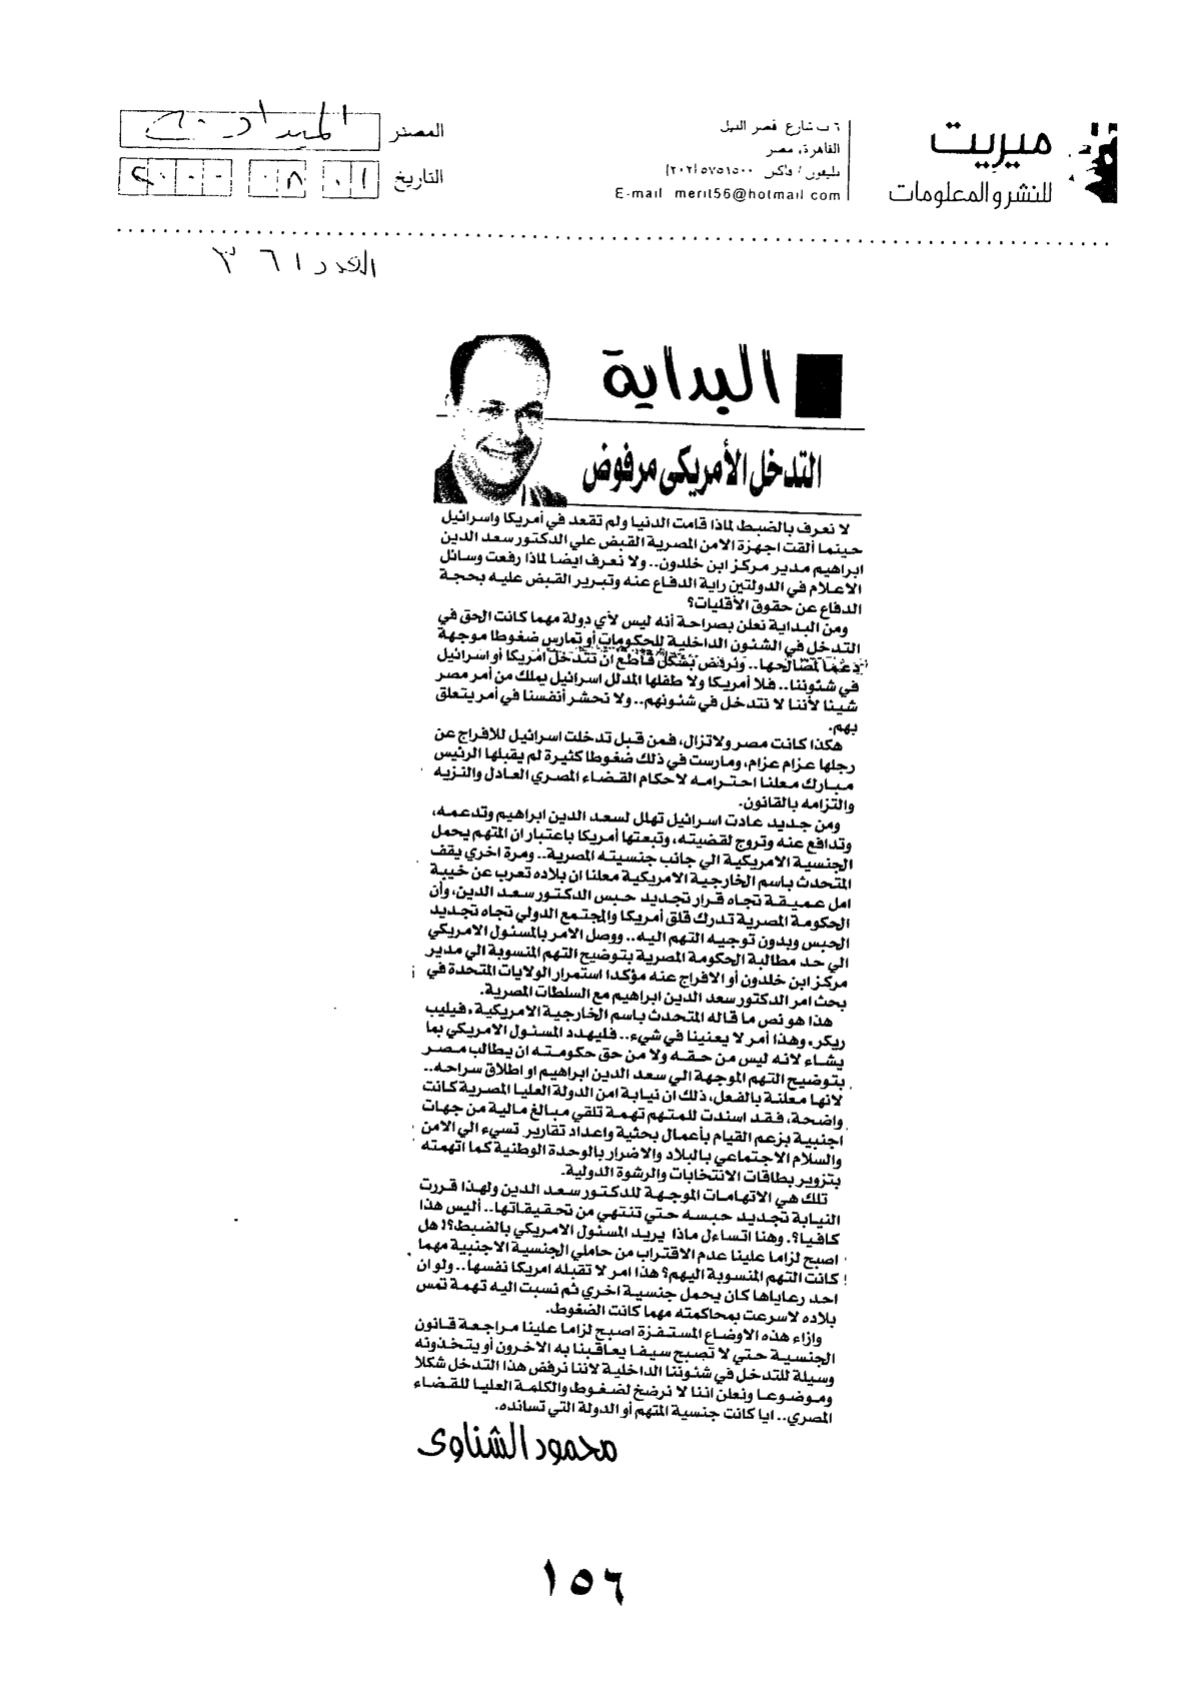 ميريت
للنشر والمعلومات
٦ ب شارع قصر النيل
القاهرة، مصر
تليفون / فاكس ٥٧٥١٥٠٠ (٢٠٢)
E-mail merit56@hotmail com
المصدر
التاريخ ٠١ ٠٨ ٢٠٠٠
العدد ٣٦١
البداية
التدخل الأمريكى مرفوض
لا نعرف بالضبط لماذا قامت الدنيا ولم تقعد في أمريكا واسرائيل
حينما ألقت اجهزة الامن المصرية القبض علي الدكتور سعد الدين
ابراهيم مدير مركز ابن خلدون.. ولا نعرف ايضا لماذا رفعت وسائل
الاعلام في الدولتين راية الدفاع عنه وتبرير القبض عليه بحجة
الدفاع عن حقوق الأقليات؟
ومن البداية نعلن بصراحة أنه ليس لأي دولة مهما كانت الحق في
التدخل في الشئون الداخلية للحكومات أو تمارس ضغوطا موجهة
دعما لمصالحها.. ونرفض بشكل قاطع ان تتدخل امريكا أو اسرائيل
في شئوننا.. فلا أمريكا ولا طفلها المدلل اسرائيل يملك من أمر مصر
شيئا لأننا لا نتدخل في شئونهم.. ولا نحشر أنفسنا في أمر يتعلق
بهم.
هكذا كانت مصر ولاتزال، فمن قبل تدخلت اسرائيل للافراج عن
رجلها عزام عزام، ومارست في ذلك ضغوطا كثيرة لم يقبلها الرئيس
مبارك معلنا احترامه لاحكام القضاء المصري العادل والنزيه
والتزامه بالقانون.
ومن جديد عادت اسرائيل تهلل لسعد الدين ابراهيم وتدعمه،
وتدافع عنه وتروج لقضيته، وتبعتها أمريكا باعتبار ان المتهم يحمل
الجنسية الامريكية الي جانب جنسيته المصرية.. ومرة اخري يقف
المتحدث باسم الخارجية الامريكية معلنا ان بلاده تعرب عن خيبة
امل عميقة تجاه قرار تجديد حبس الدكتور سعد الدين، وأن
الحكومة المصرية تدرك قلق أمريكا والمجتمع الدولي تجاه تجديد
الحبس وبدون توجيه التهم اليه.. ووصل الامر بالمسئول الامريكي
الي حد مطالبة الحكومة المصرية بتوضيح التهم المنسوبة الي مدير
مركز ابن خلدون أو الافراج عنه مؤكدا استمرار الولايات المتحدة في
بحث امر الدكتور سعد الدين ابراهيم مع السلطات المصرية.
هذا هو نص ما قاله المتحدث باسم الخارجية الامريكية، فيليب
ريكر، وهذا أمر لا يعنينا في شيء.. فليهدد المسئول الامريكي بما
يشاء لانه ليس من حقه ولا من حق حكومته ان يطالب مصر
بتوضيح التهم الموجهة الي سعد الدين ابراهيم او اطلاق سراحه..
لانها معلنة بالفعل، ذلك ان نيابة امن الدولة العليا المصرية كانت
واضحة، فقد اسندت للمتهم تهمة تلقي مبالغ مالية من جهات
اجنبية بزعم القيام بأعمال بحثية واعداد تقارير تسيء الي الامن
والسلام الاجتماعي بالبلاد والاضرار بالوحدة الوطنية كما اتهمته
بتزوير بطاقات الانتخابات والرشوة الدولية.
تلك هي الاتهامات الموجهة للدكتور سعد الدين ولهذا قررت
النيابة تجديد حبسه حتي تنتهي من تحقيقاتها.. أليس هذا
كافيا؟. وهنا اتساءل ماذا يريد المسئول الامريكي بالضبط؟! هل
اصبح لزاما علينا عدم الاقتراب من حاملي الجنسية الاجنبية مهما
كانت التهم المنسوبة اليهم؟ هذا امر لا تقبله امريكا نفسها.. ولو ان
احد رعاياها كان يحمل جنسية اخري ثم نسبت اليه تهمة تمس
بلاده لاسرعت بمحاكمته مهما كانت الضغوط.
وازاء هذه الاوضاع المستفزة اصبح لزاما علينا مراجعة قانون
الجنسية حتي لا تصبح سيفا يعاقبنا به الاخرون أو يتخذونه
وسيلة للتدخل في شئوننا الداخلية لاننا نرفض هذا التدخل شكلا
وموضوعا ونعلن اننا لا نرضخ لضغوط والكلمة العليا للقضاء
المصري.. ايا كانت جنسية المتهم أو الدولة التي تسانده.
محمود الشناوى
١٥٦